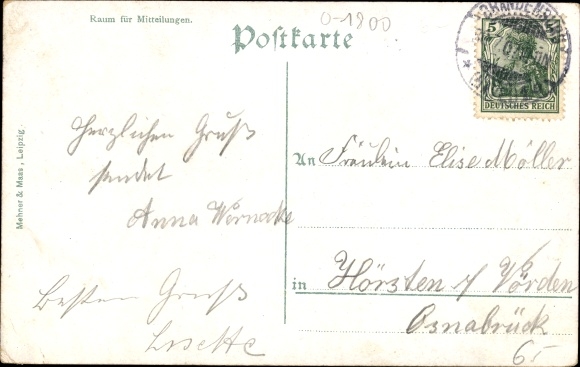 Raum für Mitteilungen.
0-1800
Postkarte
BRANDENBURG
5
DEUTSCHES REICH
Mehner & Maas, Leipzig.
Herzlichen Gruß
sendet
Anna Wernecke
Besten Gruß
Lisette
An Fräulein Elise Möller
in Hörsten b/ Vörden
Osnabrück
6.-